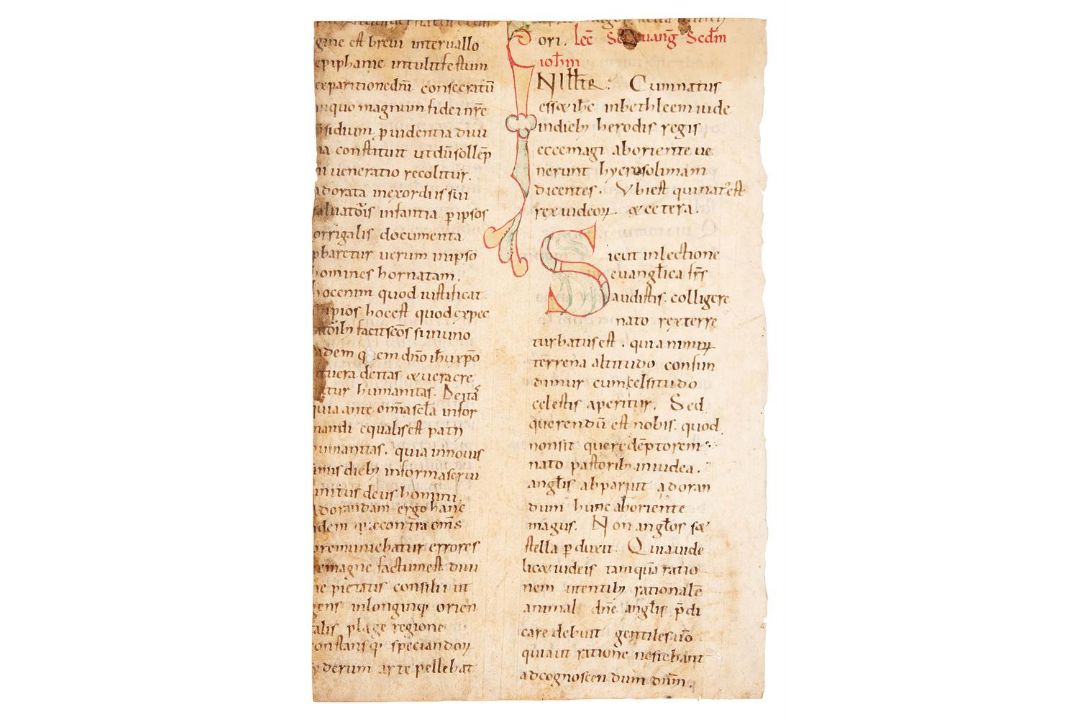 gine est brevi intervallo
epiphanie intulit festum
exparitione dñi consecratū
inquo magnum fidei nr̄e
p̱sidium ꝓvidentia divi
na constituit ut dū sollēp
ni veneratio recolitur.
adorata inexordiis sui
salvatoris infantia ꝑ ipsos
orrigalis documenta
ꝓbaretur verum in ipso
homines hor natam.
hocenim quod iustificat
impios hoc est quod ex pec
catorib; facit sc̄os si in uno
eadem quem dn̄o ih̄u xp̄o
et vera deitas & vera cre
ditur humanitas. Deitā
quia ante om̄ia sc̄la in for
mandi equalis est patri
humanitas. quia in novis
simis dieb; in forma servi
unitus deus homini.
adorandam ergo hanc
idem que contra om̄s
premuniebatur errores
e magne factum est divi
ne pietatis consilii ut
gens in longinq; orien
talis plage regione
constans q; speciandor
syderum arte pellebat
ori. lec̄ Sc̄i evanḡ Sedm̄
ioh̄m
IN ILL̄ TR̄. Cum natus
ess& ih̄c in bethleem iude
in dieb; herodis regis
ecce magi aboriente ve
nerunt hyerosolimam
dicentes. Ubi est qui nat; est
rex iudeoꝝ. & cetera.
Sicut in lectione
evanglica fr̄s
audistis. colligere
nato rex terre
turbatus est. quia nimiꝝ
terrena altitudo confun
dimur cum celsitudo
celestis aperitur. Sed
querendū est nobis. quod
nonsit que redēptorem
nato pastorib; in iudea.
angl̄is apparuit adoran
dum hunc aboriente
magus. Non angl̄os s&
stella ꝑ duxit. Quia vide
lic& iudeis tamquā ratio
nem utentib; rationale
animal. dn̄e angl̄is p̄di
care debuit gentiles v̄o
quia ut ratione nesciebant
ad cognoscendum dn̄m.